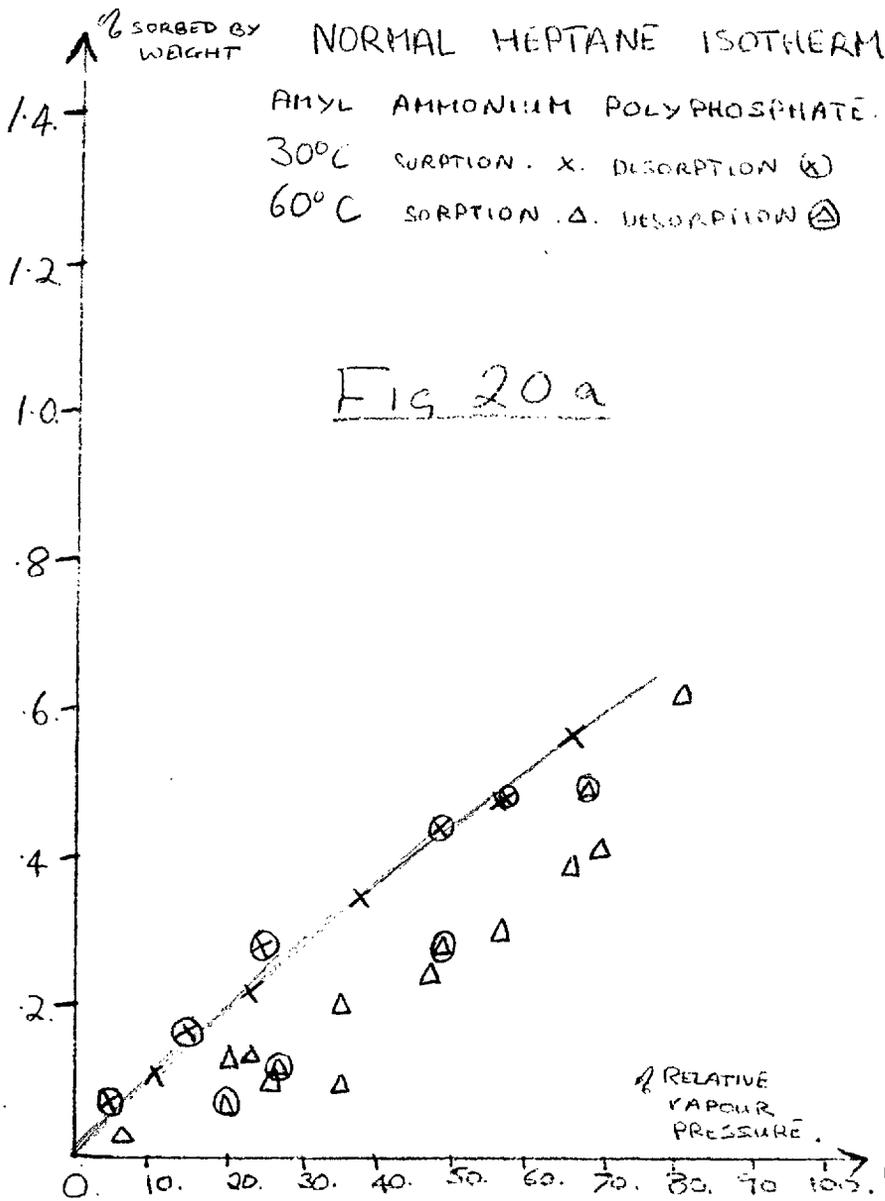 % SORBED BY
WEIGHT
NORMAL HEPTANE ISOTHERM
AMYL AMMONIUM POLYPHOSPHATE.
30°C SORPTION. X. DESORPTION ⓧ
60°C SORPTION. △. DESORPTION
Fig 20 a
1.4.
1.2.
1.0.
.8
.6.
.4
.2.
% RELATIVE
VAPOUR
PRESSURE.
0. 10. 20. 30. 40. 50. 60. 70. 80. 90 100.